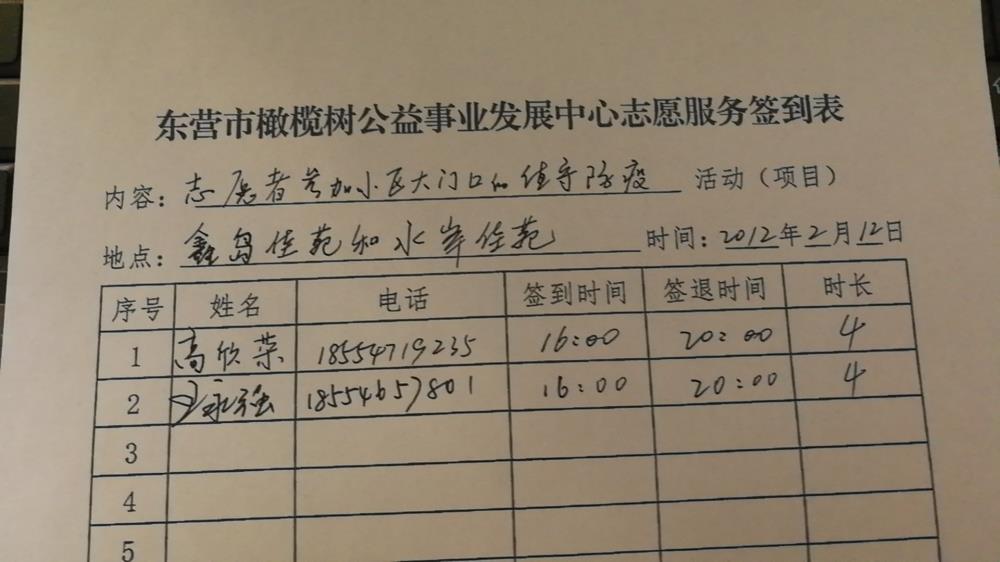 东营市橄榄树公益事业发展中心志愿服务签到表
内容：志愿者参加小区大门口的值守防疫 活动（项目）
地点：鑫岛佳苑和水岸佳苑 时间：2012年2月12日
序号 姓名 电话 签到时间 签退时间 时长
1 高欣荣 18554719235 16:00 20:00 4
2 永强 18554657801 16:00 20:00 4
3
4
5